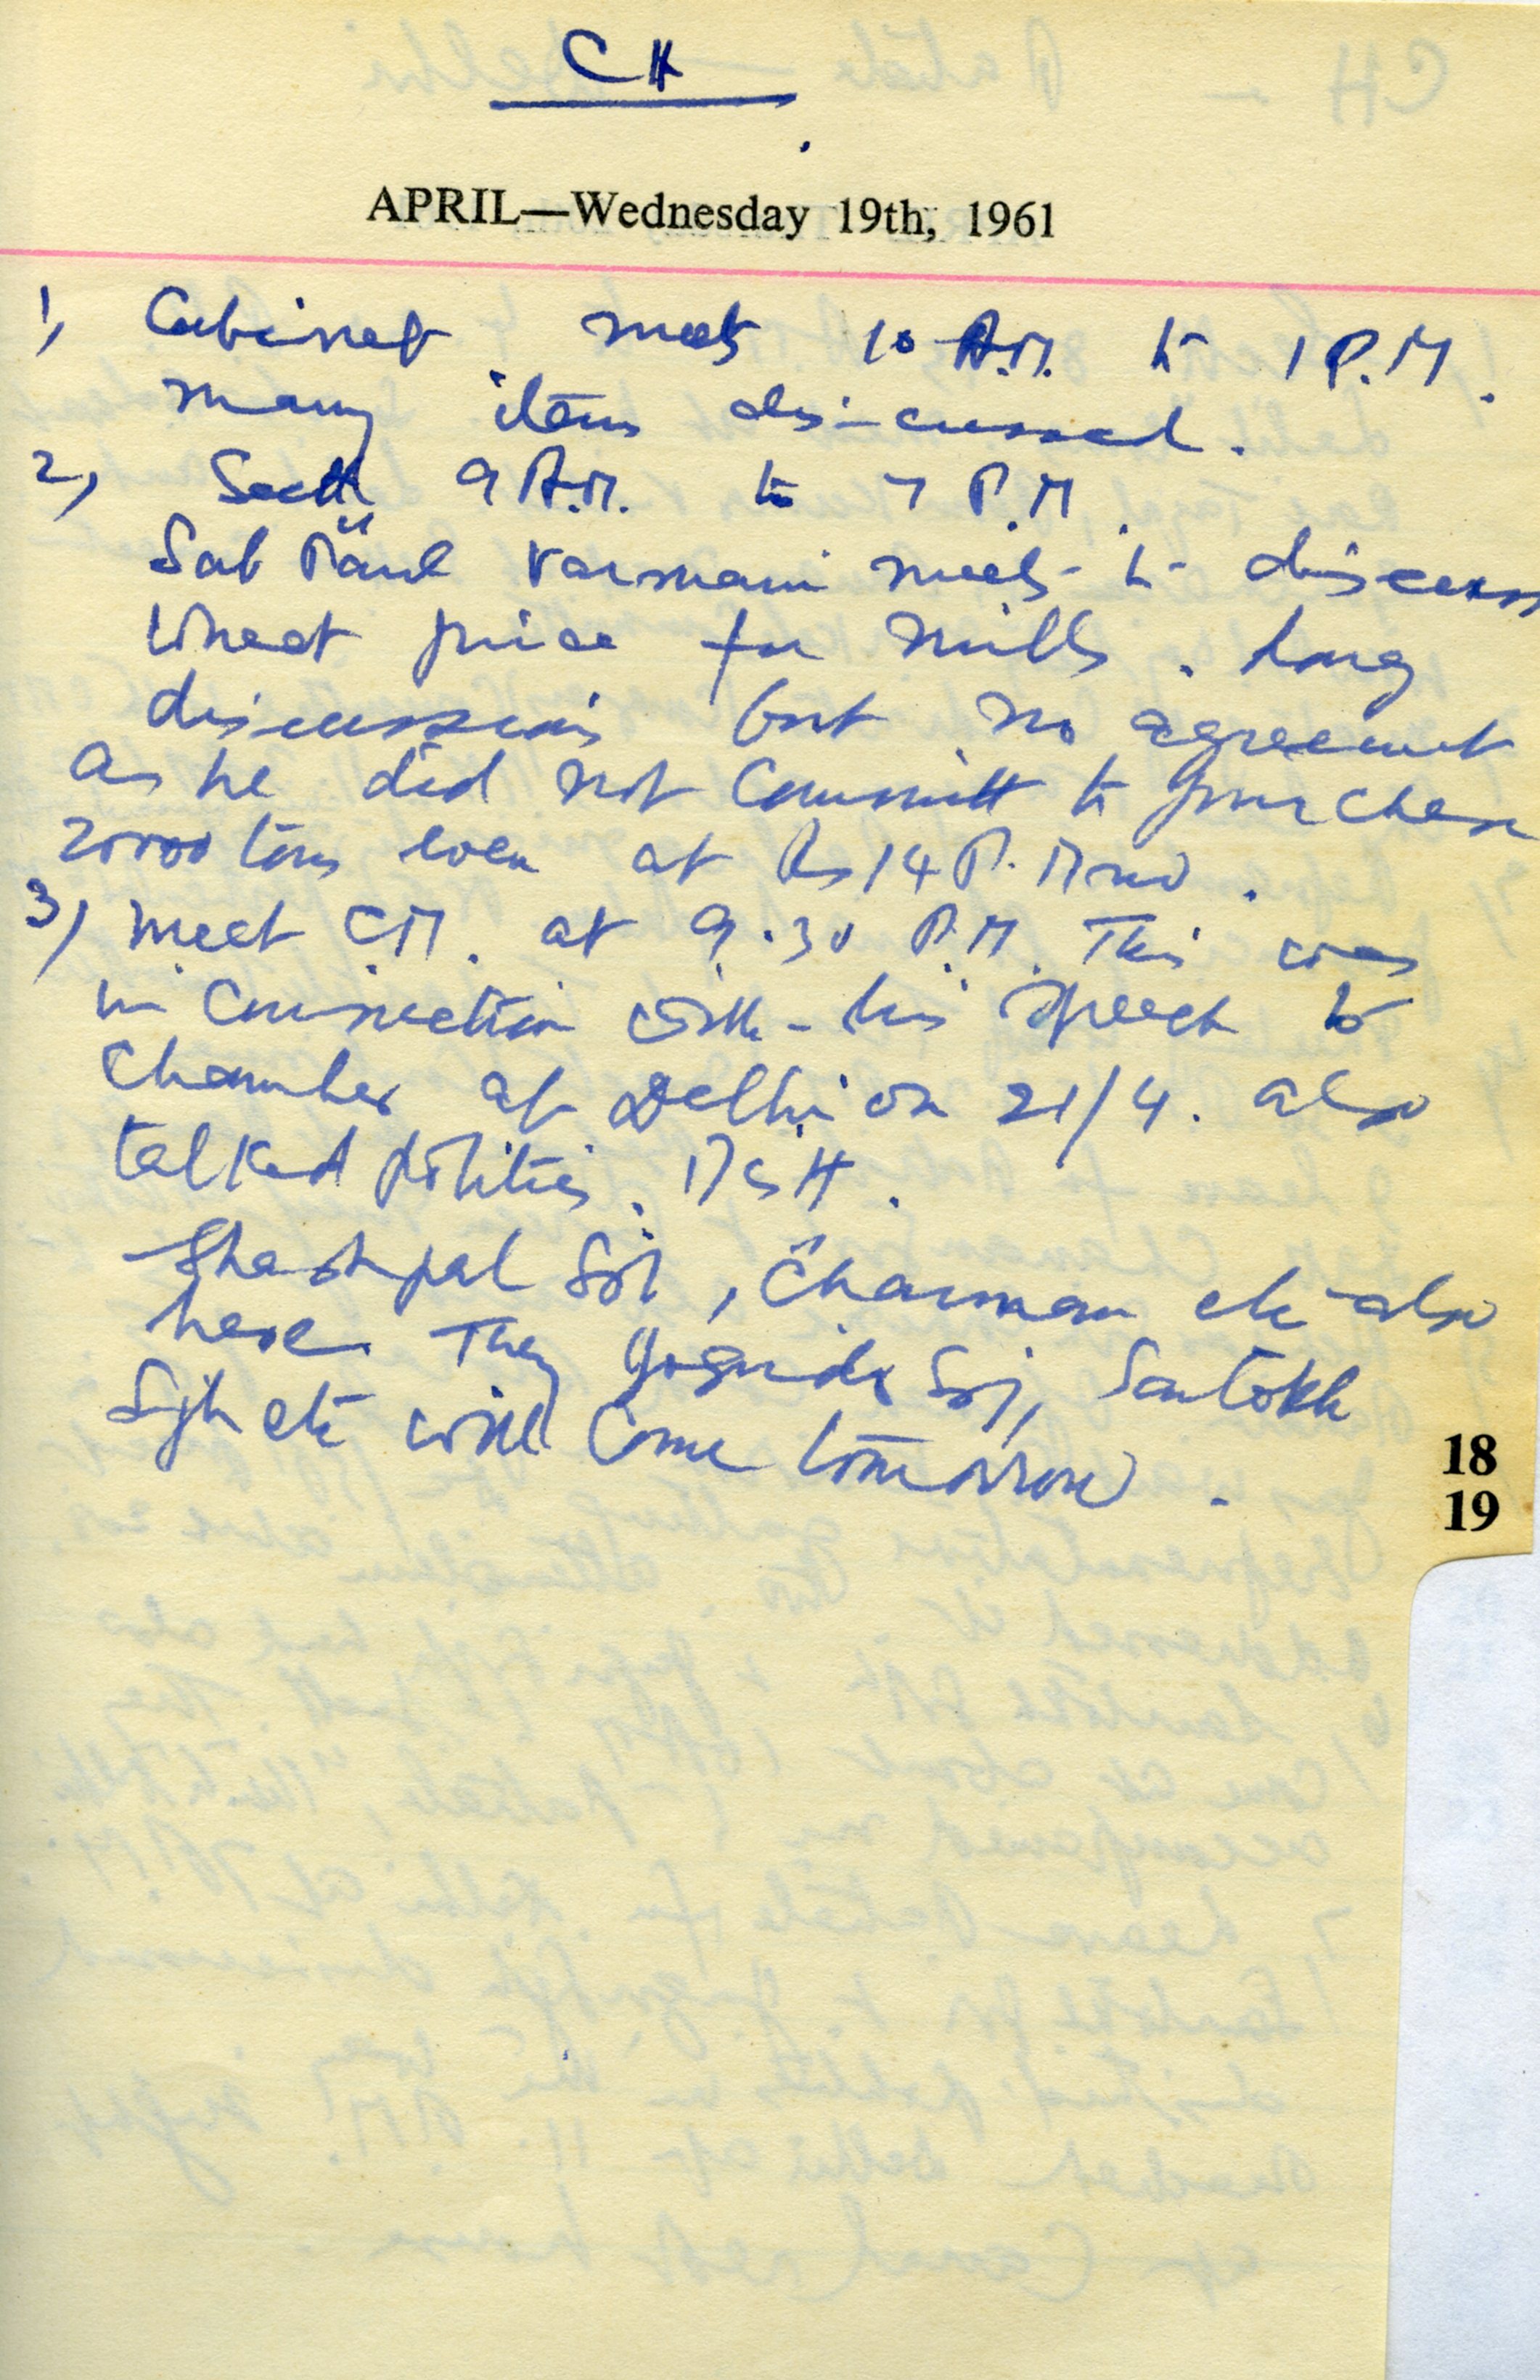 CH
APRIL—Wednesday 19th, 1961
1) Cabinet meets 10 A.M. to 1 P.M.
many items discussed.
2) Sectt 9 A.M. to 7 P.M.
Sat Paul Varmani meets to discuss
wheat price for mills. Long
discussions but no agreement
as he did not Committ to purchase
20000 tons even at Rs 14 P. Mnd.
3) Meet C.M. at 9.30 P.M. This was
in Connection with his speech to
Chamber at Delhi on 21/4. also
talked politics.
Shashpal , Chairman etc also
here. They Jogindr , Santokh
Sgh etc will Come tomorrow.
18
19